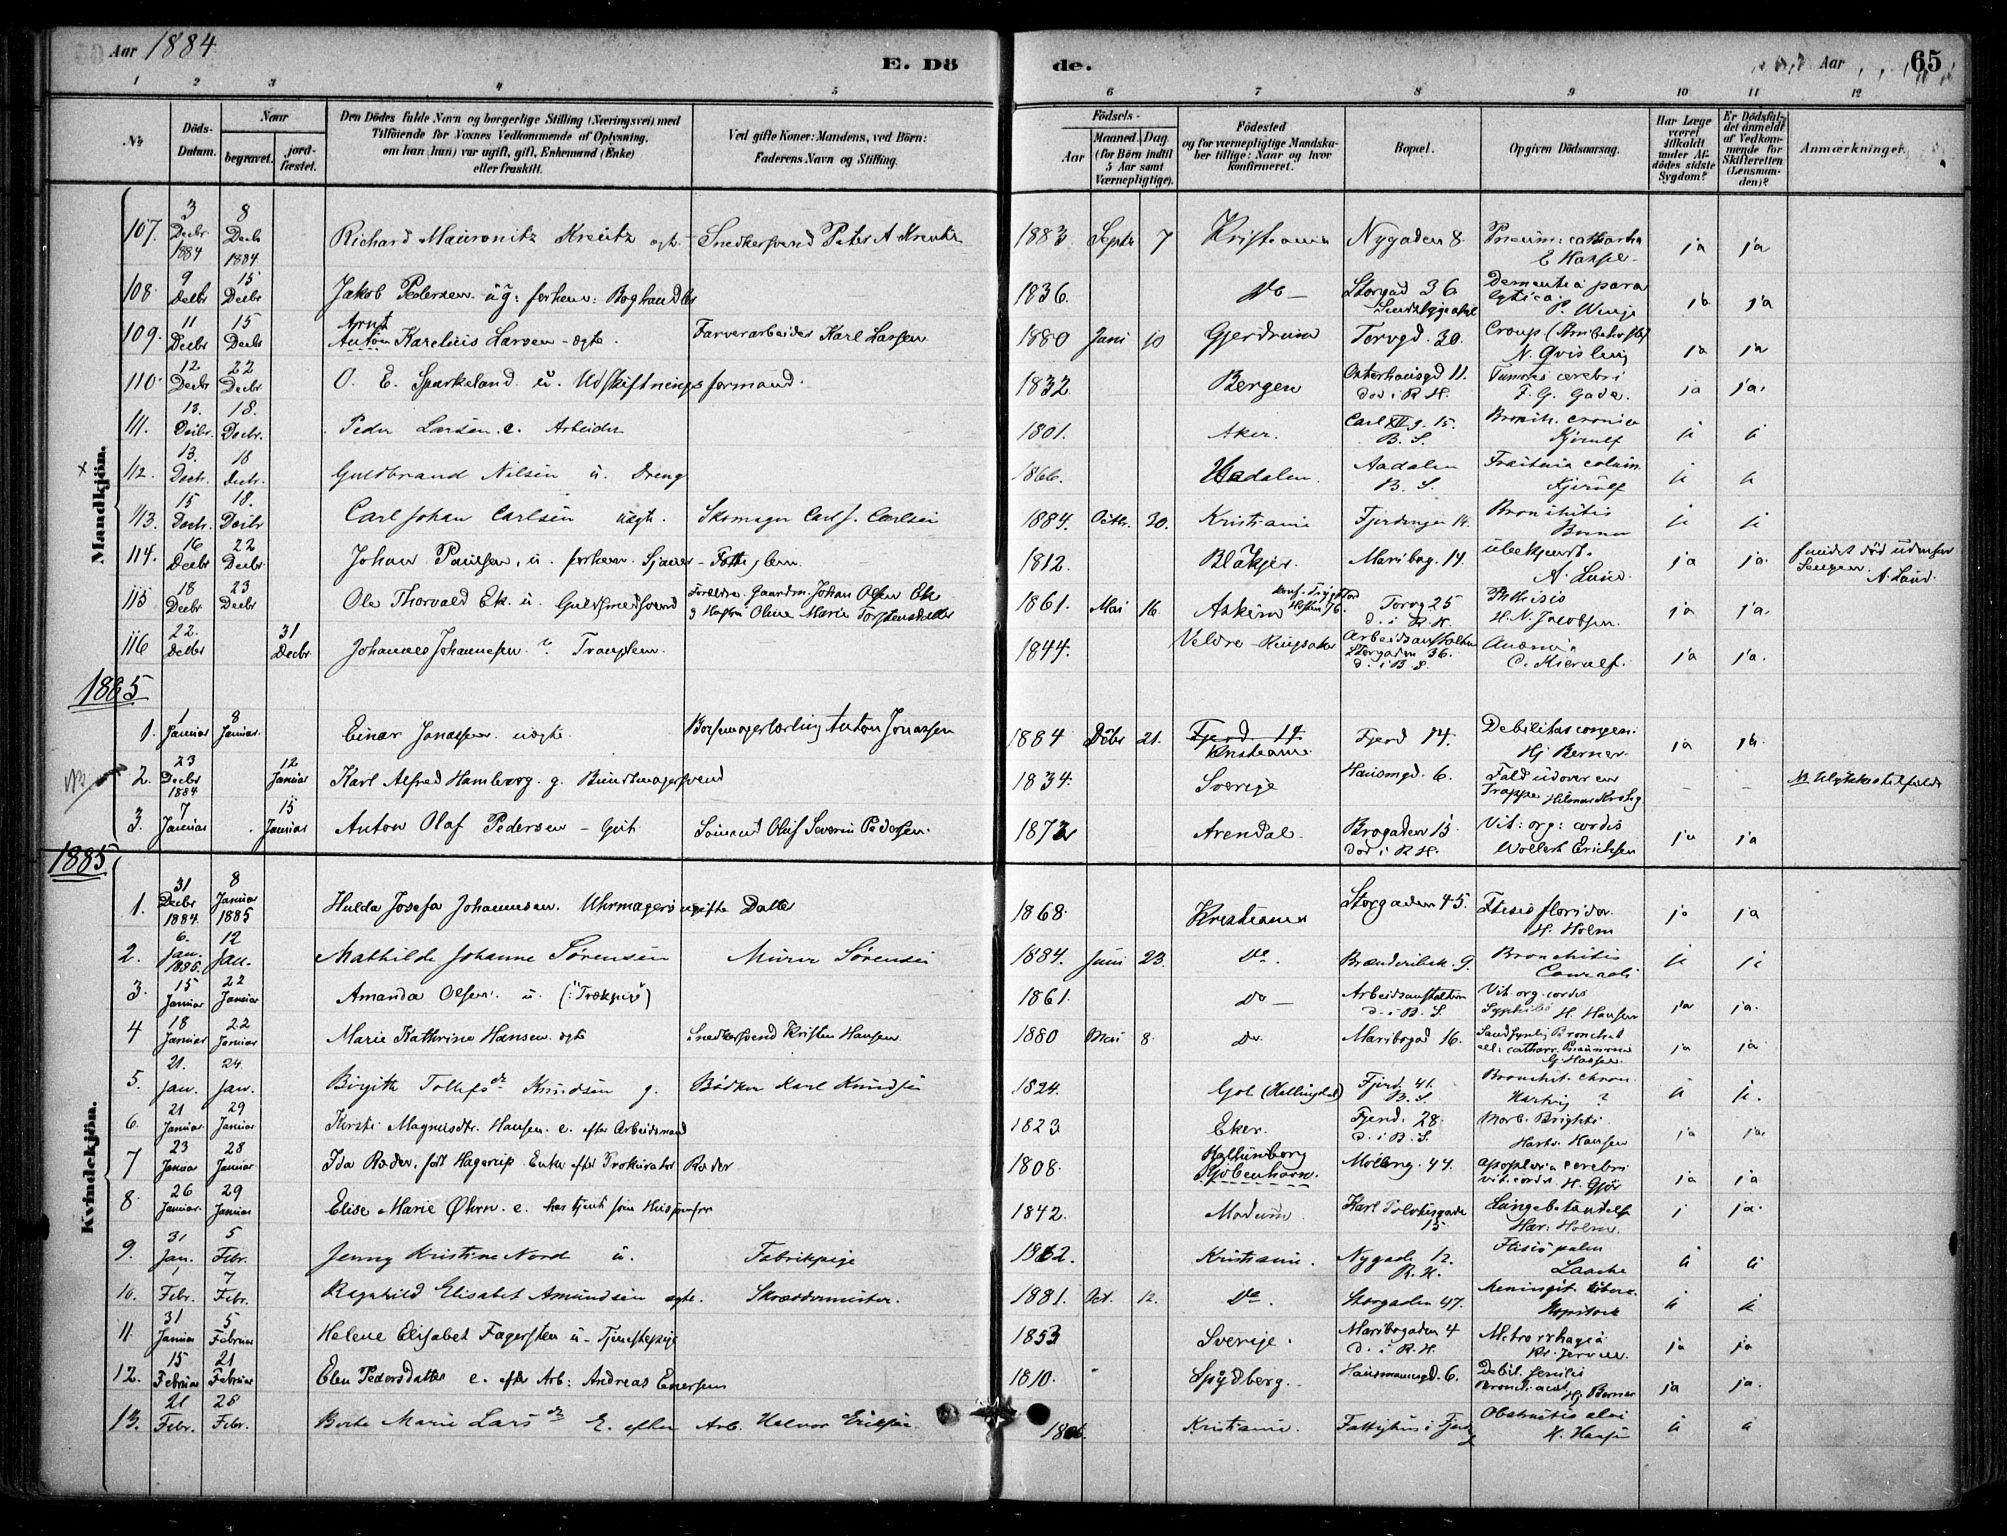 Aar 1884
E. Dö
de.
Aar
65
1 2 3 4 5 6 7 8 9 10 11 12
№
Döds-Datum.
Naar
begravet.
jord-fæstet.
Den Dödes fulde Navn og borgerlige Stilling (Næringsvei) med
Tilföiende for Voxnes Vedkommende af Oplysning,
om han (hun) var ugift, gift, Enkemand (Enke)
eller fraskilt.
Ved gifte Koner: Mandens, ved Börn:
Faderens Navn og Stilling.
Födsels-
Aar
Maaned.
Dag.
(for Börn indtil
5 Aar samt
Værnepligtige).
Födested
og for værnepligtige Mandska-
ber tillige: Naar og hvor
konfirmeret.
Bopæl.
Opgiven Dödsaarsag.
Har Læge
været
tilkaldt
under Af-
dödes sidste
Sygdom?
Er Dödsfal-
det anmeldt
af Vedkom-
mende for
Skifteretten
(Lensman-
den)?
Anmærkninger.
Mandkjön.
107. 3 Decbr 1884 8 Decbr 1884 Richard Mauronitz Kreutz ægt. Snedkersvend Peter A Kreutz 1883 Septbr 7 Kristiania Nygaden 8. ja ja
108. 9 Decbr 15 Decbr Jakob Pedersen ug: forhen: Boghandler 1836. do Storgad 36 Dementia paralytica P. Winge ja ja
109. 11 Decbr 15 Decbr Arnt Anton Karelius Larsen - ægte. Farverarbeider Karl Larsen 1880 Juni 10 Gjerdrum Torvgd. 30. Croup N. Qvisling ja ja
110. 12 Decbr 22 Decbr O. E. Sparkeland u. Udskiftningsformand. 1832 Bergen Osterhausgd 11. død i R.H. Tumores cerebri F. G. Gade. ja ja.
111. 13. Decbr. 18. Decbr. Peder Larsen. e. Arbeider 1801. Aker. Carl XII g. 15. B. S. Bronch. cronica Kjerulf
112. 13. Decbr. 18 Decbr. Guldbrand Nilsen u. Dreng 1866. Aadalen. Aadalen B. S. Kjerulf
113. 15 Decbr. 18. Decbr Carl Johan Carlsen uægt. Skomager Carl J. Carlsen 1884. Octbr. 30. Kristiania Fjerdingen 14. Bronchitis
114. 16 Decbr 22 Decbr Johan Paulsen, u. forhen. Sjauer - Fattiglem. 1812. Blakjer. Maribog. 14. ubekjendt. A. Lund. ja ja. fundet død udenfor Sengen A. Lund.
115 18 Decbr 23 Decbr Ole Thorvald Ek. u. Guldsmedsvend Forældre. Gaardm. Johan Olsen Ek og Hustru Oline Marie Torstensdatter 1861. Mai 16. Askim Torvg 25 d. i R.H. Phthisis H. N. Jacobsen. ja ja.
116 22. Decbr 31 Decbr Johannes Johannesen. 1844. Veldre - Ringsaker Arbeidsanstalten Storgaden 36. d. i B. S C. Kierulf. ja ja.
1885
1. 1 Januar 8 Januar. Einar Jonassen. uægte. Børsemagerlærling Anton Jonassen 1884 Dcbr 21. Fjerd 14. Kristiania Fjerd 14. Debilitas congen: Hj Berner. ja ja.
NB 2. 23 Decbr 1884 12 Januar Karl Alfred Hamborg. g. Bundtmagersvend 1834. Sverige Hausmgd. 6. Fald udover en Trappe - - Ulykkestilfælde
3. 7 Januar 15 Januar Anton Olaf Pedersen - Gut. Sømand Oluf Severin Pedersen. 1872 Arendal. Brogaden 15 død i R.H. Vit: org: cordis Vollert Erichsen ja ja
1885
Kvindekjön.
1. 31 Decbr 1884. 8 Januar 1885 Hulda Josefa Johannesen. Uhrmagers ugifte Datter 1868. Kristiania Storgaden 45. Ftisis florida. H. Holm ja ja
2. 6. Jan. 1885. 12 Jan. Mathilde Johanne Sørensen Murer Sørensen 1884. Juni 23. Do. 9. Bronchitis Conradi
3. 15 Januar 22 Januar Amanda Olsen. u. 1861. Do Arbeidsanstalten d. i B. S. Vit. org. cordis Syphilis H. Hansen ja ja.
4 18 Januar 22 Januar Marie Kathrine Hansen ægte Snedkersvend Kristen Hansen 1880 Mai 8. Do Maribogad 16. ja ja
5. 21. Jan. 24. Jan. Birgith Tollefsdr Knudsen g. Bødker Karl Knudsen 1824. Gol (Hallingdal) Fjerd. 41. B. S. Bronchit. chron. Hartvig ?
6. 21 Januar 29 Januar Kirsti Magnusdtr. Hansen. e. efter Arbeidsmand 1823 Eker. Fjerd. 28. d. i B. S. Morb. Brightii Hartv. Hansen ja ja
7 23 Januar 28 Januar Ida Roder, født Hagerup Enke efter Prokurator Roder 1808. Kallundborg Kjøbenhavn. Møllerg. 44. apoplexia cerebri vit. cordis ja ja
8. 26 Januar. 29 Januar Elise Marie Øhrn. e. har tjent som Husjomfru 1842. Modum. 15 Lungebetændelse Har: Holm. ja.
9. 31 Jan. 5 Febr. Jenny Kristine Nord u. Fabrikpige 1862. Kristiania. Nygade 12. R. H. Ftisis pulm Laache
10. 1 Febr. 7 Febr. Ragnhild Elisabet Amundsen ægte. Skræddermester. 1881. Oct. 12. Do. Storgaden 47.
11. 31 Januar 5 Februar Helene Elisabet Fagersten u - Tjenestepige 1853 Sverige. Maribogaden 4 d. i R. H. Metrorrhagia ja ja
12. 15 Februar 21 Februar Elen Pedersdatter e. efter Arb: Andreas Enersen 1810. Spydberg. Hausmannsgd. 6. Debil. senilis Bronch. acut. Hj Berner ja ja.
13. 21 Febr. 28 Febr. Berte Marie Larsdr E. efter Arb. Halvor Eriksen 1806. Kristiania. Fattighus i Fjerd. Obstrutio alvi H. Hansen